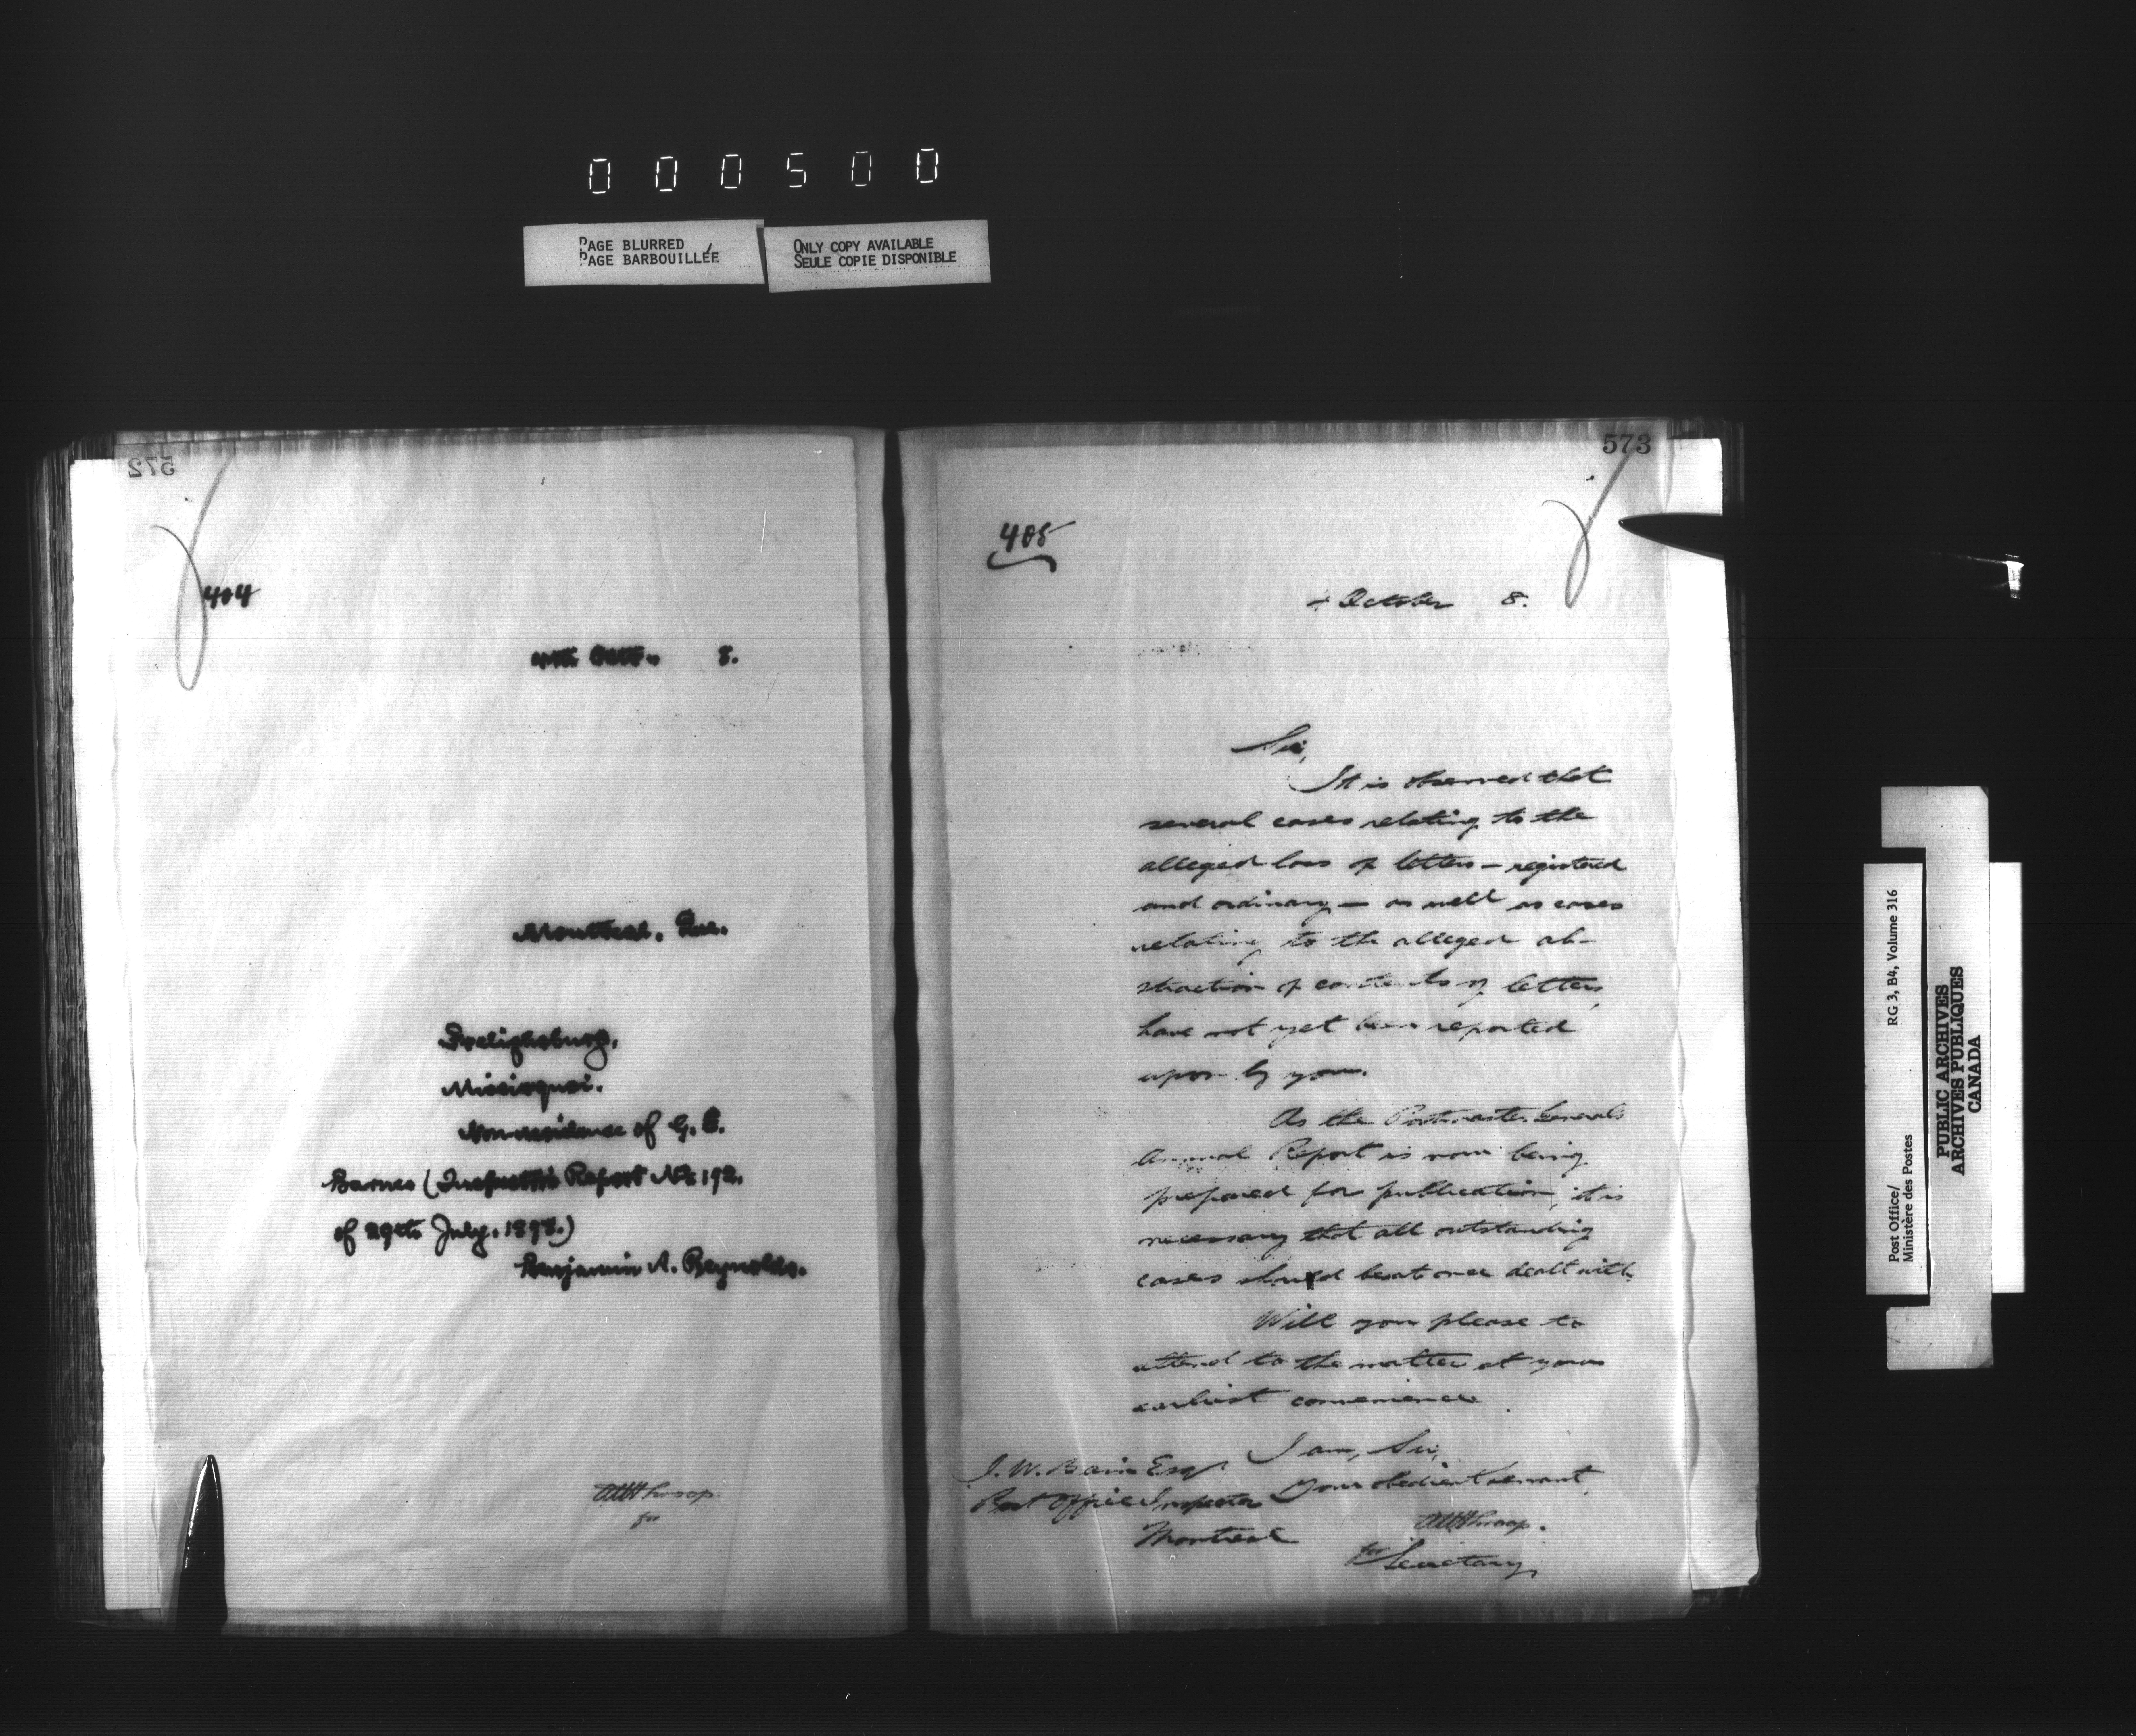 000500
PAGE BLURRED
PAGE BARBOUILLÉE
ONLY COPY AVAILABLE
SEULE COPIE DISPONIBLE
572
404
4th Oct. 8.
Montreal, Que.
Frelighsburg,
Missisquoi.
Non-residence of G. E.
Barnes (Inspector's Report No. 192.
of 29th July, 1898.)
Benjamin A. Reynolds.
AWThroop
for
573
405
October 8.
Sir,
It is observed that
several cases relating to the
alleged loss of letters – registered
and ordinary – as well as cases
relating to the alleged ab-
straction of contents of letters,
have not yet been reported
upon by you.
As the Postmaster General's
Annual Report is now being
prepared for publication, it is
necessary that all outstanding
cases should be at once dealt with.
Will you please to
attend to the matter at your
earliest convenience.
I am, Sir,
Your obedient servant,
AWThroop.
for Secretary
J. W. Bain Esqr
Post Office Inspector
Montreal
Post Office/ RG 3, B4, Volume 316
Ministère des Postes
PUBLIC ARCHIVES
ARCHIVES PUBLIQUES
CANADA